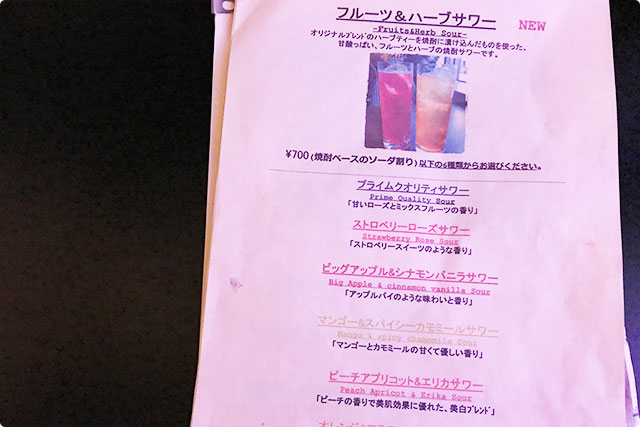 フルーツ&ハーブサワー
NEW
-Fruits&Herb Sour-
オリジナルブレンドのハーブティーを焼酎に漬け込んだものを使った、
甘酸っぱい、フルーツとハーブの焼酎サワーです。
¥700(焼酎ベースのソーダ割り)以下の6種類からお選びください。
プライムクオリティサワー
Prime Quality Sour
「甘いローズとミックスフルーツの香り」
ストロベリーローズサワー
Strawberry Rose Sour
「ストロベリースイーツのような香り」
ビッグアップル&シナモンバニラサワー
Big Apple & cinnamon vanilla Sour
「アップルパイのような味わいと香り」
マンゴー&スパイシーカモミールサワー
Mango & spicy chamomile Sour
「マンゴーとカモミールの甘くて優しい香り」
ピーチアプリコット&エリカサワー
Peach Apricot & Erika Sour
「ピーチの香りで美肌効果に優れた、美白ブレンド」